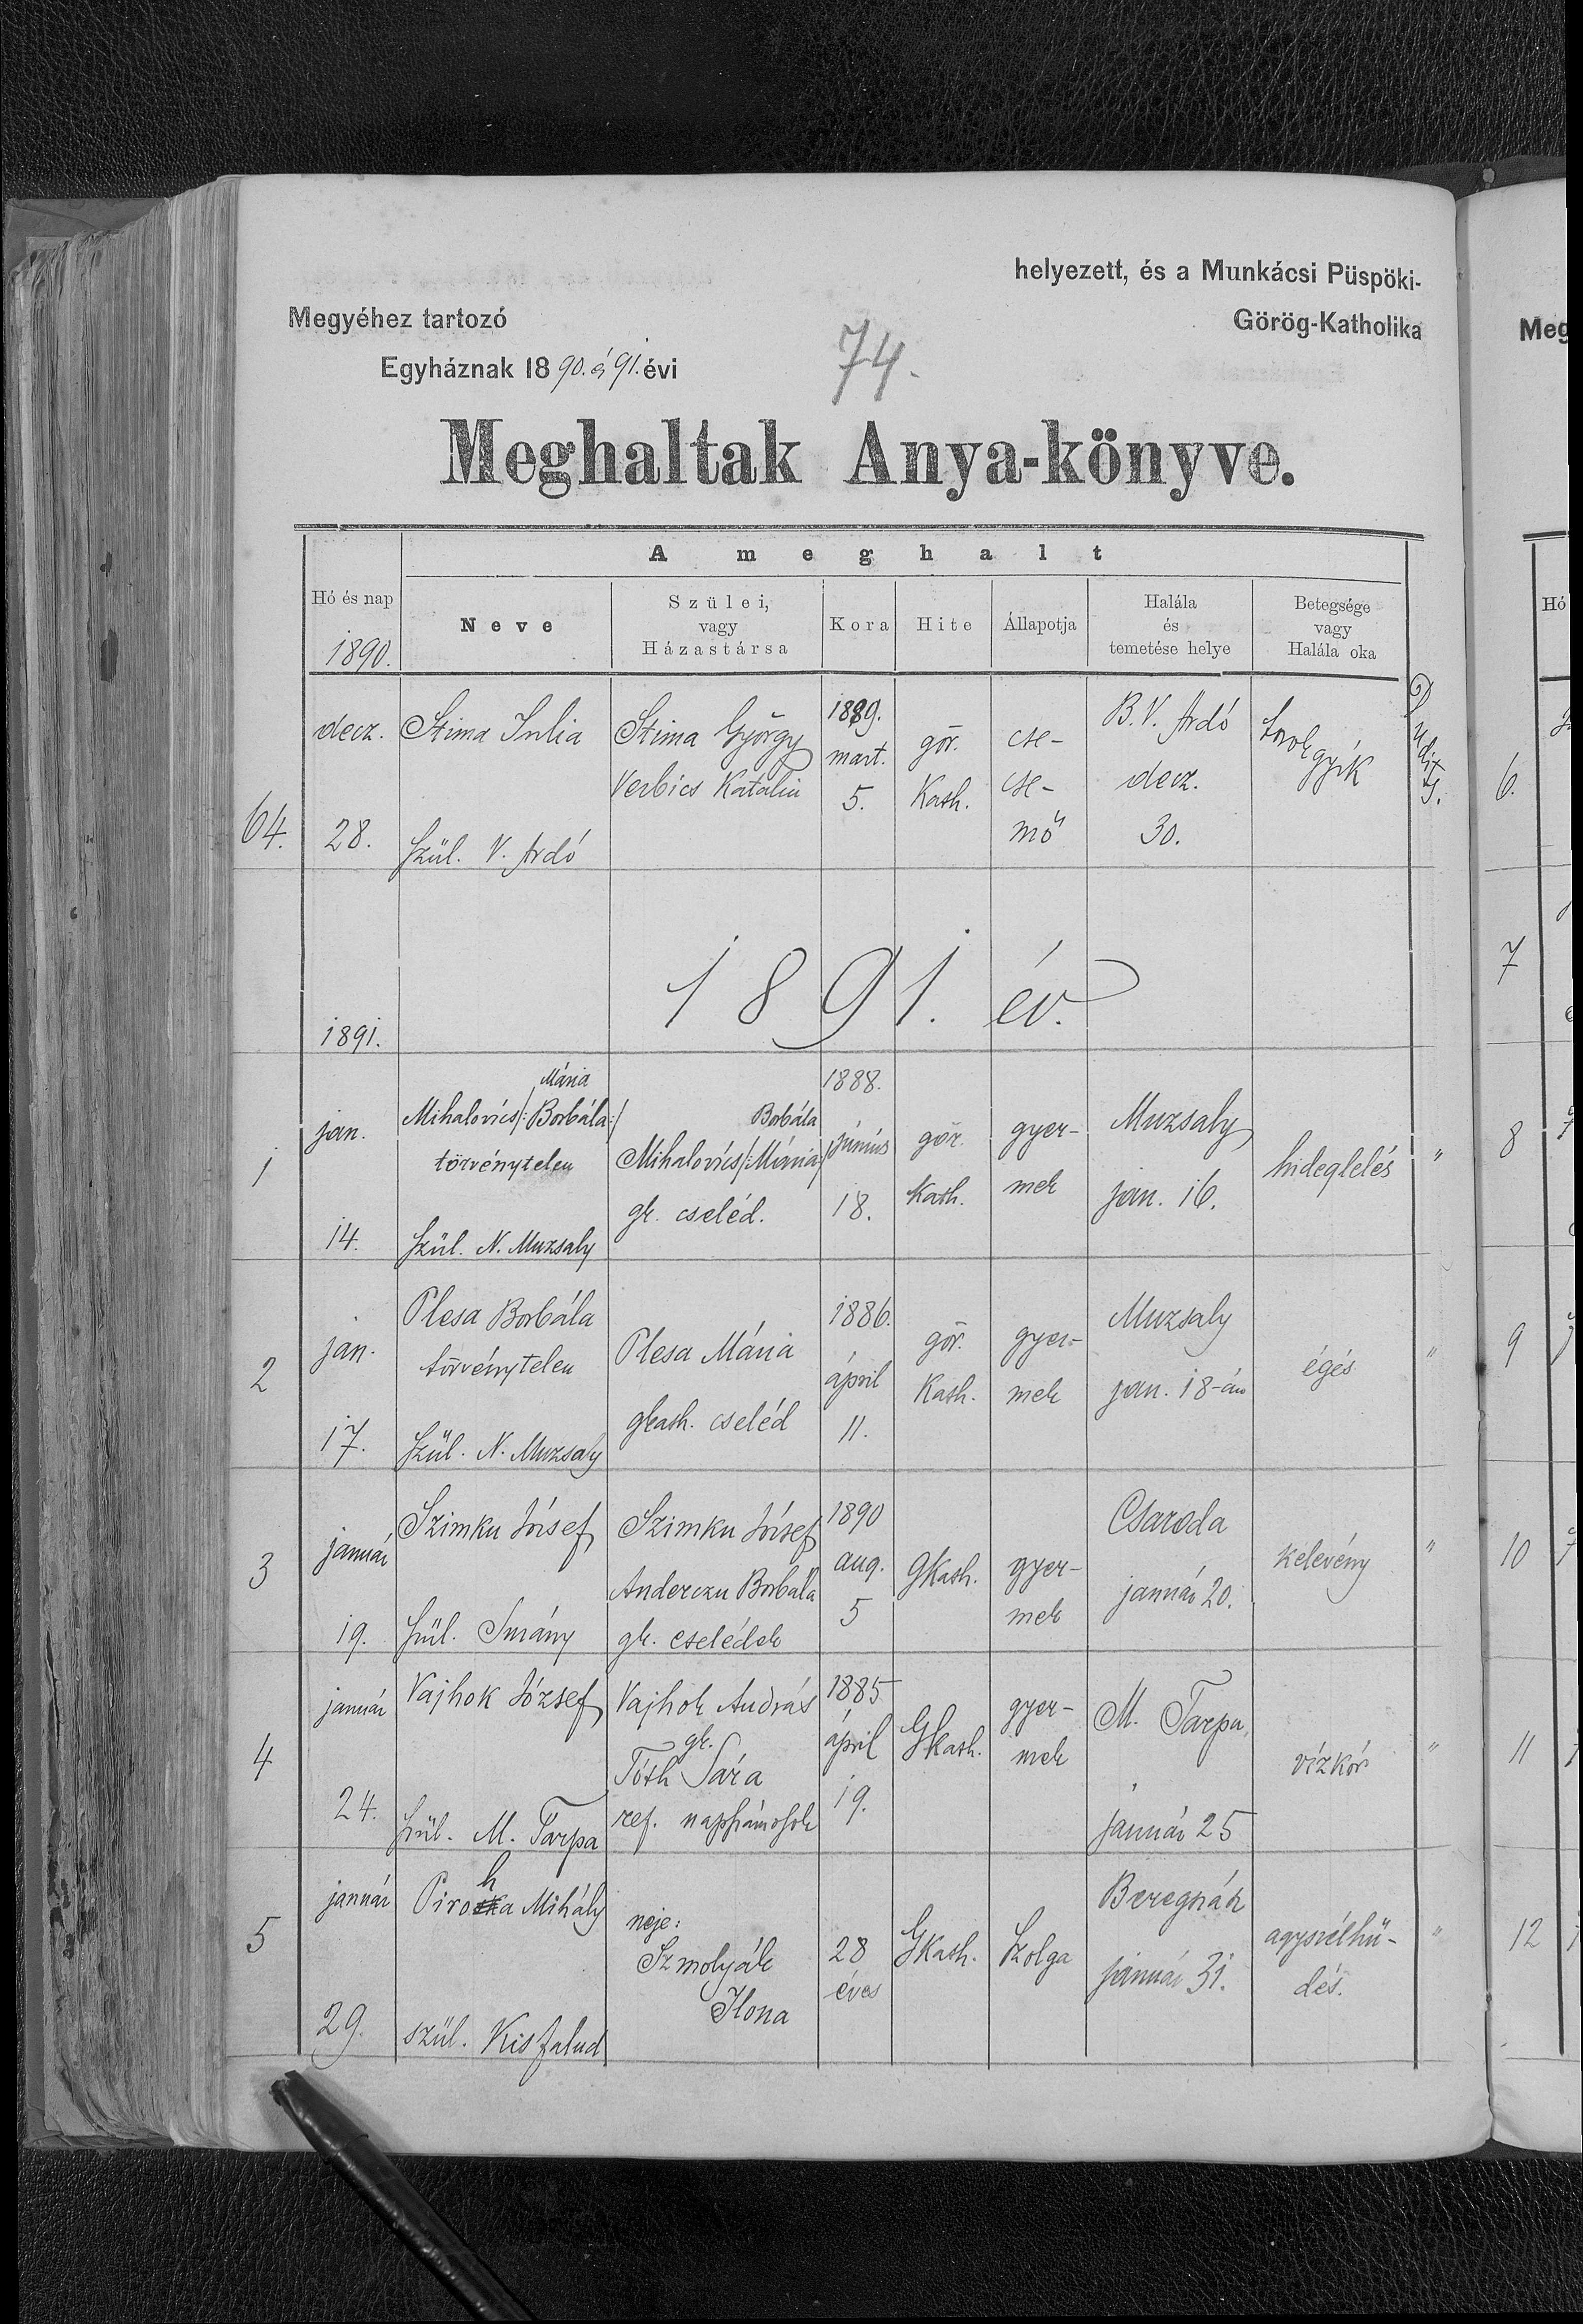 helyezett, és a Munkácsi Püspöki-
Megyéhez tartozó
Görög-Katholika
Egyháznak 1890. é 91. évi
74.
Meghaltak Anya-könyve.
A meghalt
Hó és nap
1890.
Neve
Szülei,
vagy
Házastársa
Kora
Hite
Állapotja
Halála
és
temetése helye
Betegsége
vagy
Halála oka
64.
decz.
28.
Stima Julia
Szül. V. Ardó
Stima György
Verbics Katalin
1889.
mart.
5.
gör.
Kath.
cse-
cse-
mő
B. V. Ardó
decz.
30.
torokgyík
1891. év.
1891.
1
jan.
14.
Mária
Mihalovics /:Borbála:/
törvénytelen
Szül. N. Muzsaly
Borbála
Mihalovics /:Mária:/
gk. cseléd.
1888.
június
18.
gör.
Kath.
gyer-
mek
Muzsaly
jan. 16.
hideglelés
"
2
jan.
17.
Plesa Borbála
törvénytelen
Szül. N. Muzsaly
Plesa Mária
gkath. cseléd
1886.
ápril
11.
gör.
Kath.
gyer-
mek
Muzsaly
jan. 18-án
égés
"
3
január
19.
Szimku József
Szül. Surány
Szimku József
Anderczu Borbála
gk. cselédek
1890
aug.
5
GKath.
gyer-
mek
Csaroda
január 20.
kelevény
"
4
január
24.
Vajhok József
Szül. M. Tarpa
Vajhok András
gk.
Tóth Sára
ref. napszámosok
1885
ápril
19.
GKath.
gyer-
mek
M. Tarpa,
január 25
vízkór
"
5
január
29.
h
Piroska Mihály
szül. Kisfalud
neje:
Szmolyák
Ilona
28
éves
GKath.
Szolga
Beregszáz
január 31.
agyszélhü-
dés.
"
Meg
Hó
6.
7
8
9
10
11
12